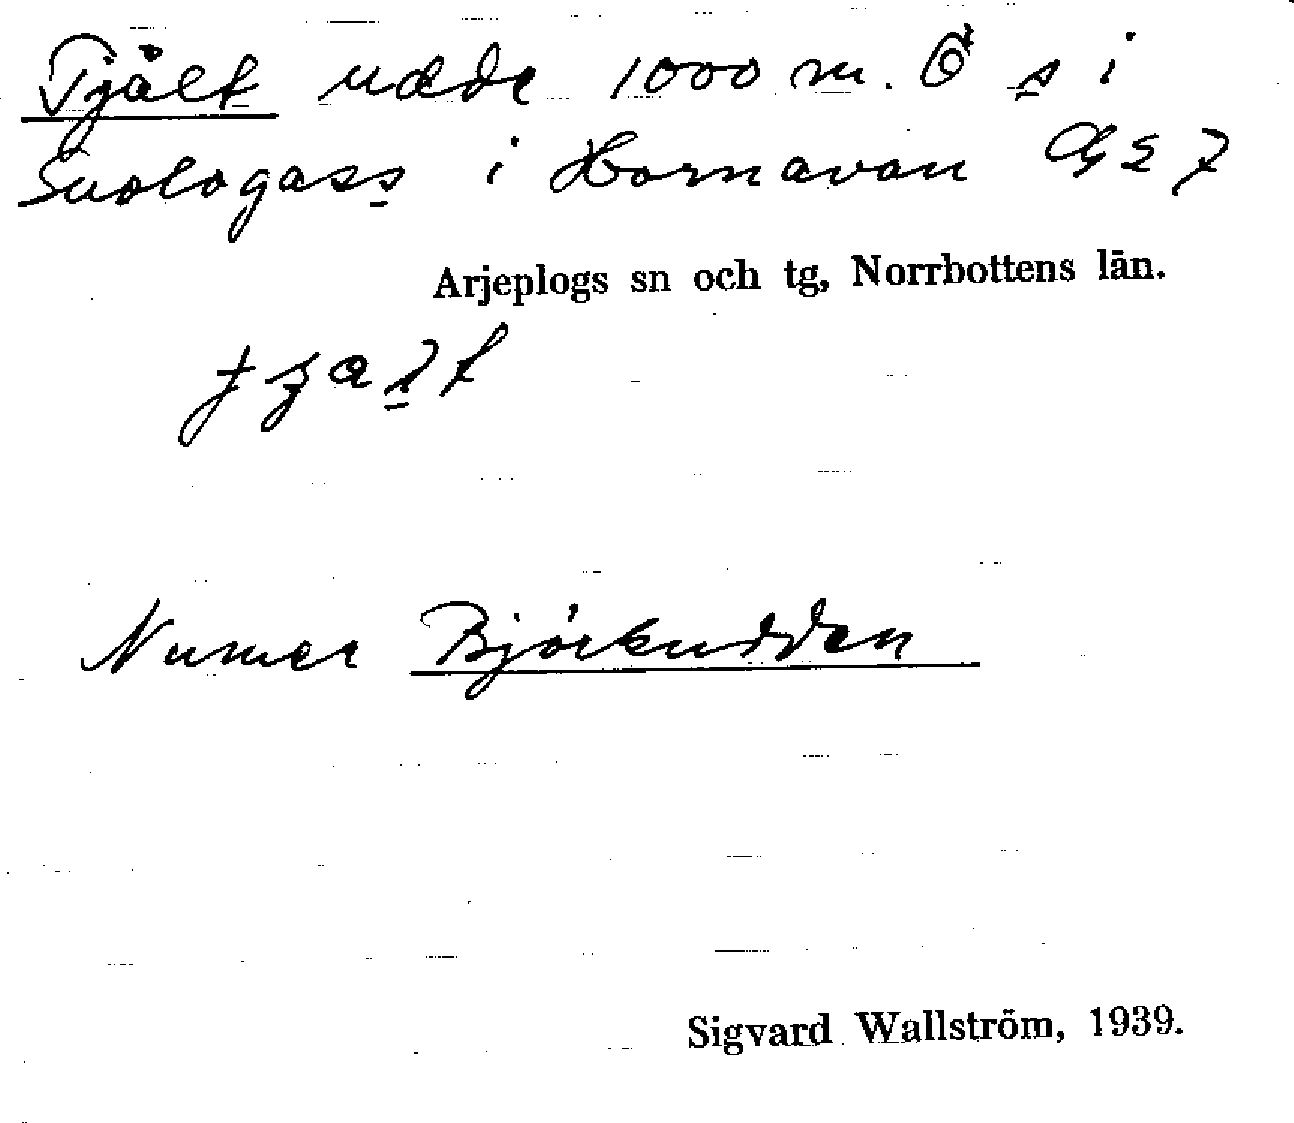 Tjålt udde 1000 m. Ö s i
Suologass i Hornavan G2 7
Arjeplogs sn och tg, Norrbottens län.
Numer Björkudden
Sigvard Wallström, 1939.